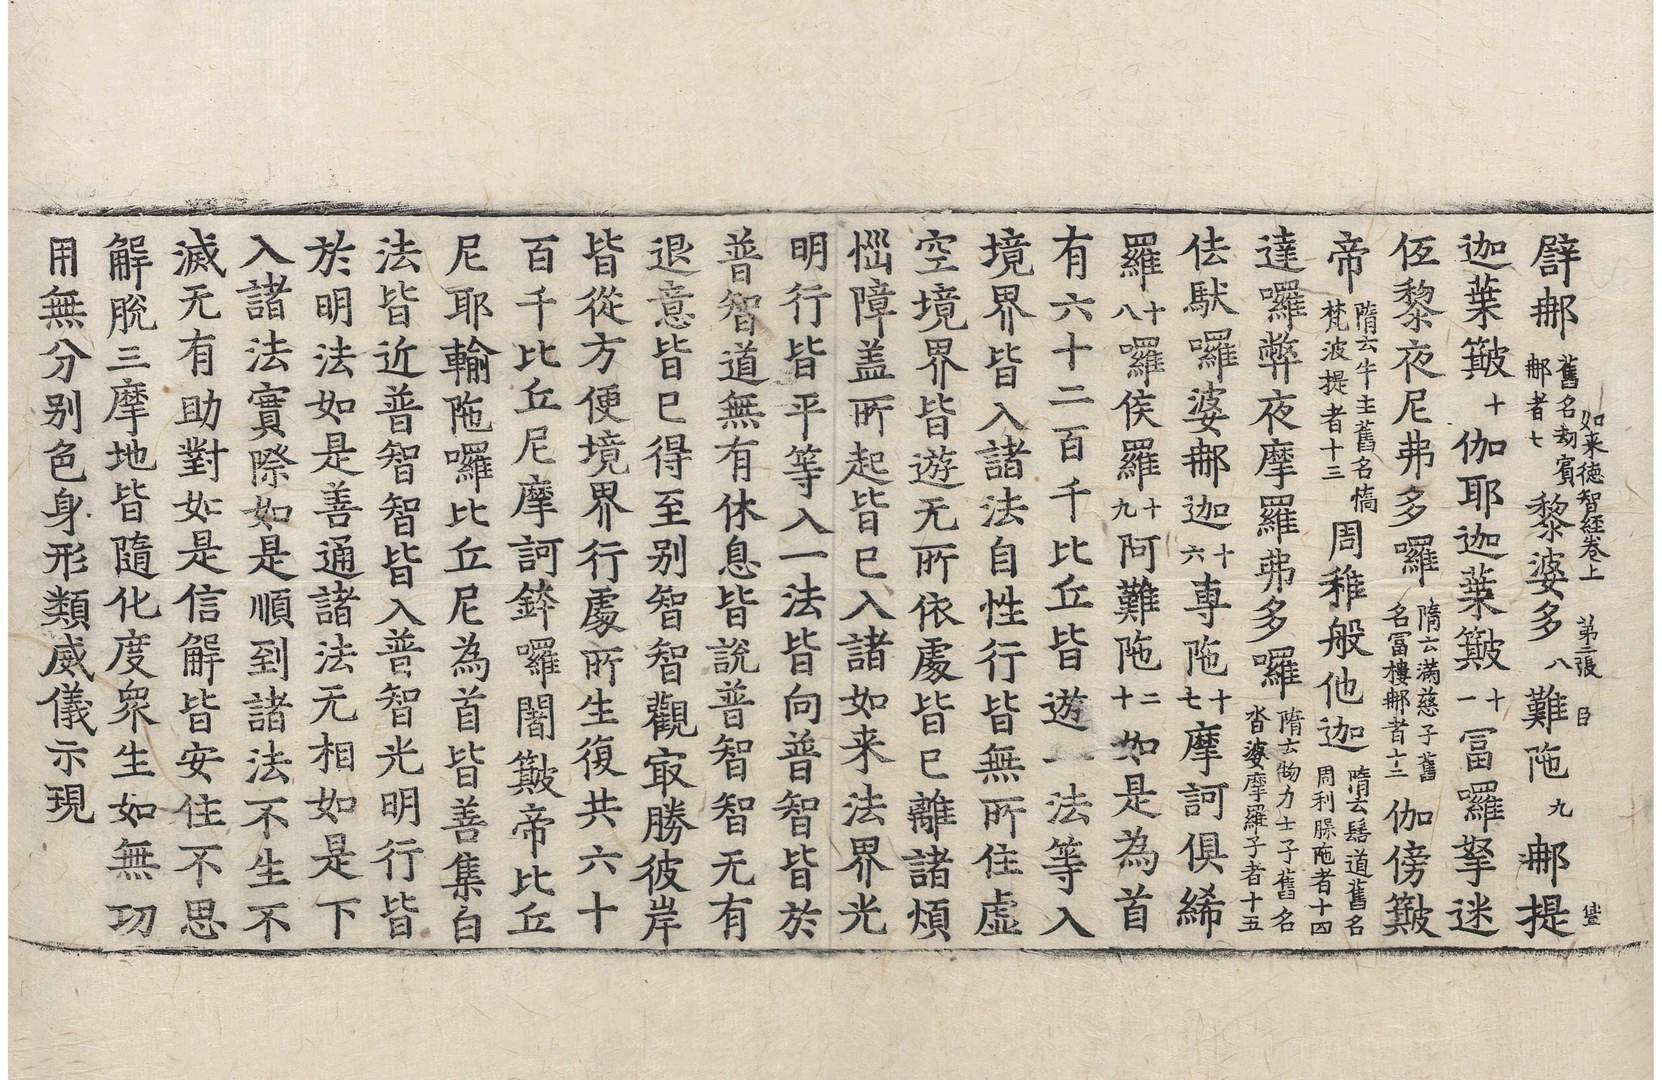 如来德智經卷上 第二張
辟𨚗舊名劫賓𨚗者七黎婆多八難陁九𨚗提
迦葉簸十伽耶迦葉簸十一冨囉拏迷
伍黎夜尼弗多囉隋云滿慈子舊名冨樓𨚗者十二伽傍簸
帝隋云牛主舊名憍梵波提者十三周稚般他迦隋云髻道舊名周利臊陁者十四
達囉弊夜摩羅弗多囉隋云物力士子舊名沓婆摩羅子者十五
佉馱囉婆𨚗迦十六専陁十七摩訶俱絺
羅十八囉侯羅十九阿難陁二十如是為首
有六十二百千比丘皆遊一法等入
境界皆入諸法自性行皆無所住虛
空境界皆遊无所依處皆已離諸煩
惱障盖所起皆已入諸如来法界光
明行皆平等入一法皆向普智皆於
普智道無有休息皆說普智智无有
退意皆已得至别智智觀㝡勝彼岸
皆從方便境界行處所生復共六十
百千比丘尼摩訶鉢囉闍簸帝比丘
尼耶輸陁囉比丘尼為首皆善集白
法皆近普智智皆入普智光明行皆
於明法如是善通諸法无相如是下
入諸法實際如是順到諸法不生不
滅无有助對如是信解皆安住不思
解脫三摩地皆隨化度衆生如無功
用無分别色身形類威儀示現